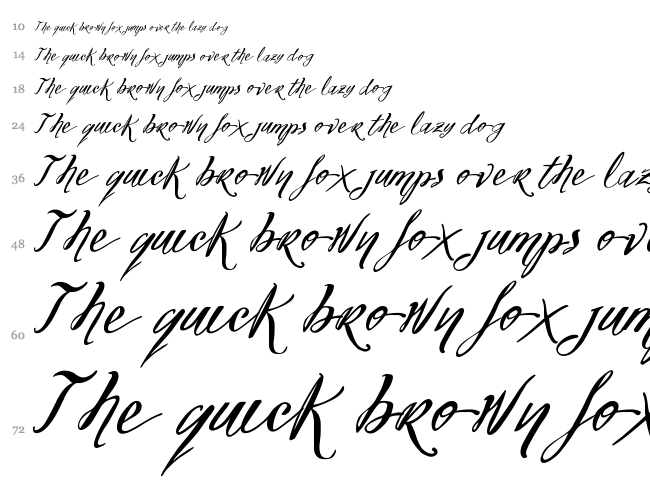 10 The quick brown fox jumps over the lazy dog
14 The quick brown fox jumps over the lazy dog
18 The quick brown fox jumps over the lazy dog
24 The quick brown fox jumps over the lazy dog
36 The quick brown fox jumps over the laz
48 The quick brown fox jumps ov
60 The quick brown fox jum
72 The quick brown fox